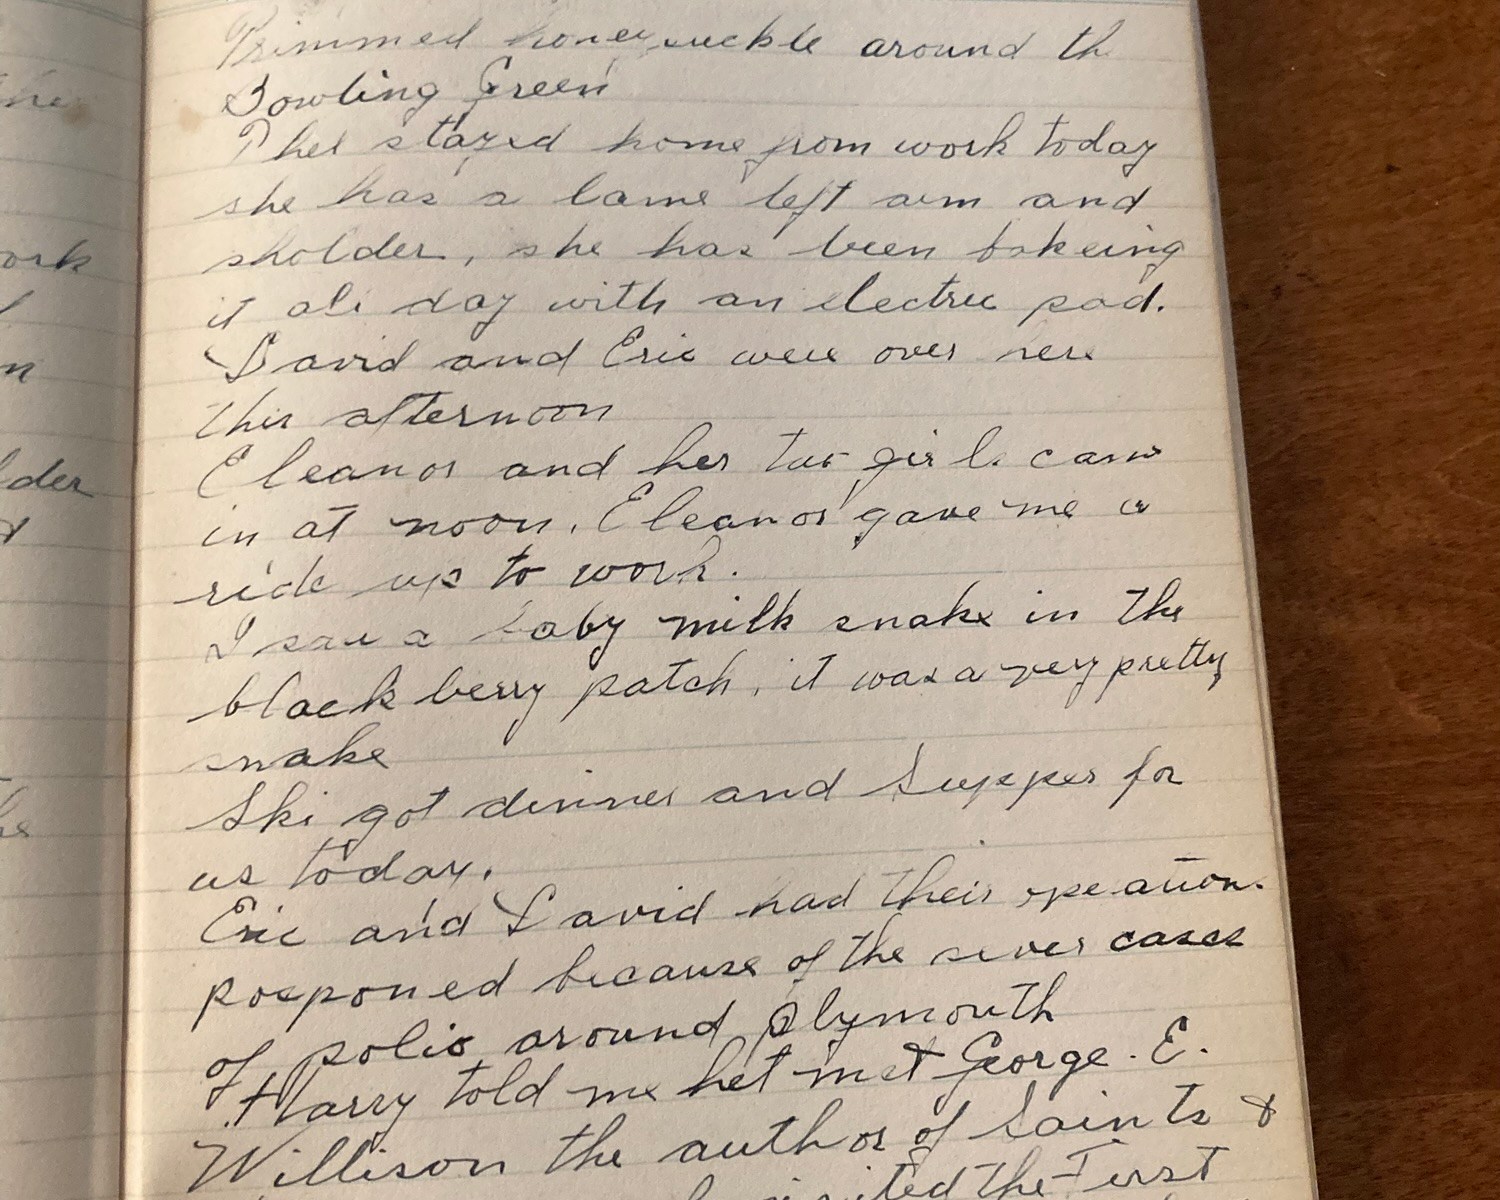 the
Trimmed honeysuckle around th
Bowling Green
Thel stayed home from work today
ork
she has a lame left arm and
sholder, she has been bakeing
it all day with an electric pad.
n
David and Eric were over here
this afternoon
Eleanor and her two girls came
lder
in at noon. Eleanor gave me a
&
ride up to work.
I saw a baby milk snake in the
black berry patch, it was a very pretty
snake
Ski got dinner and Supper for
he
us today.
Eric and David had their operation
posponed because of the sever cases
of polio around Plymouth
Harry told me het met George. E.
Willison the author of Saints &
visited the First